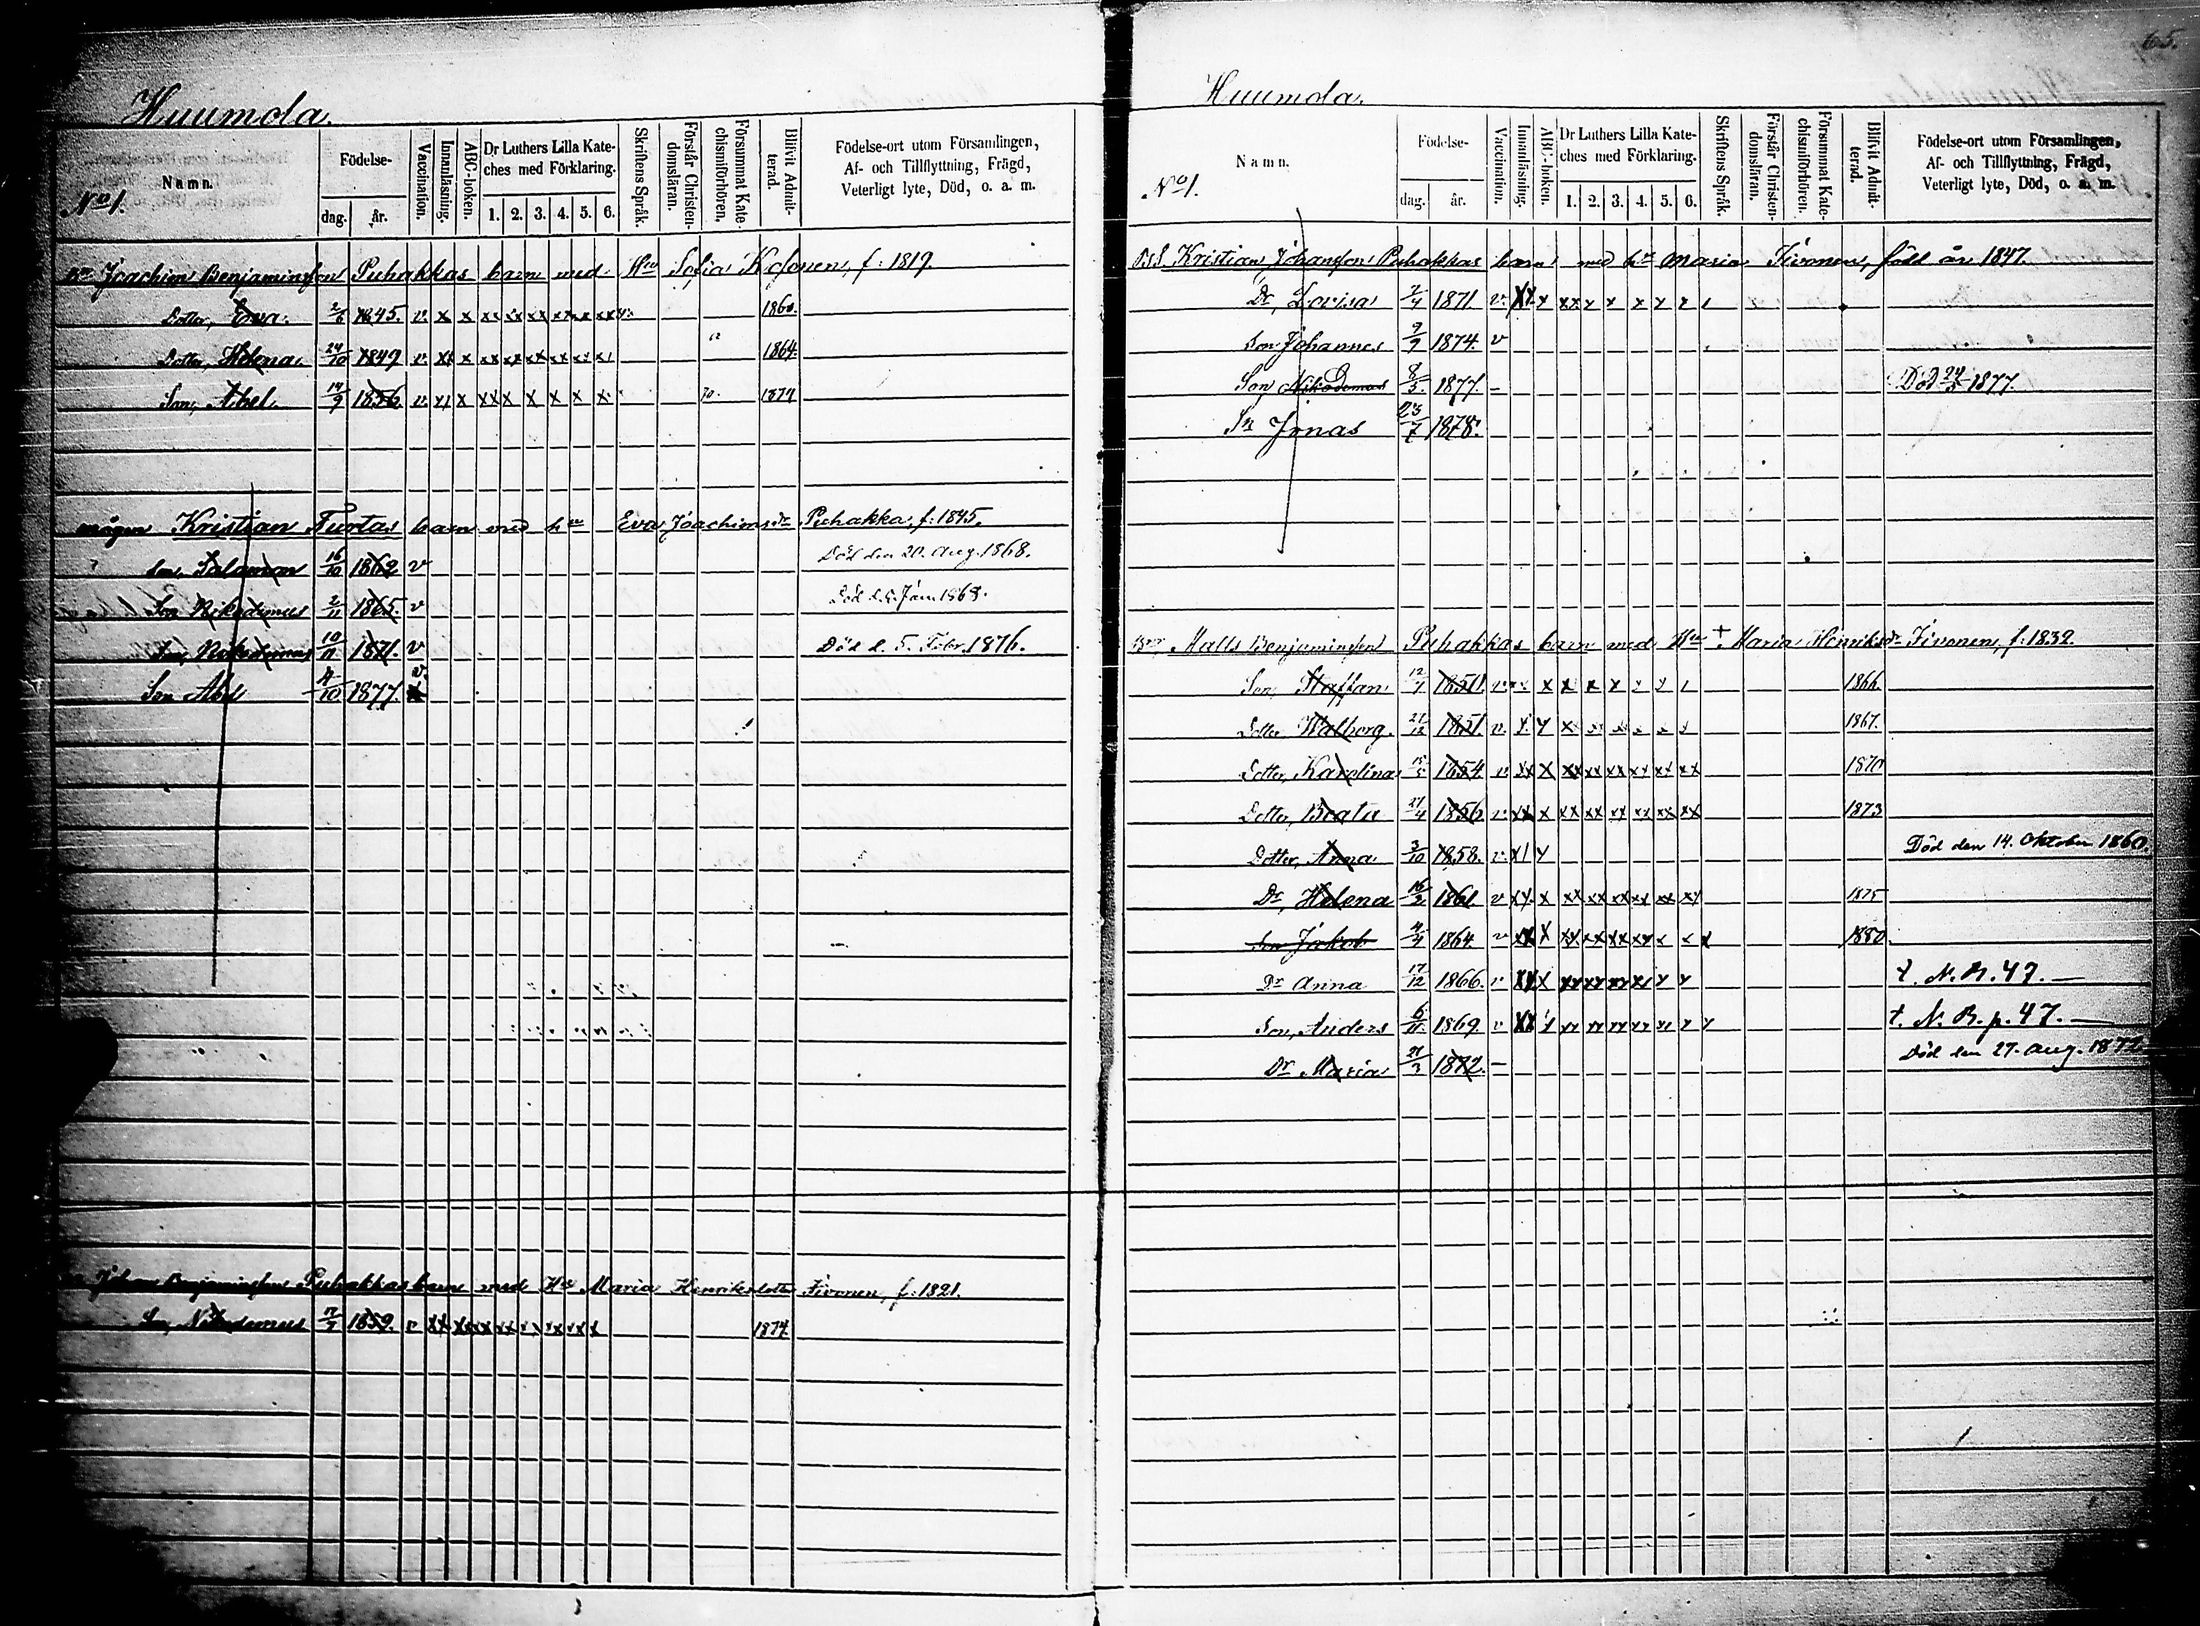 Huumola.
No 1.
Namn.
Födelse-
dag.
år.
Vaccination.
Innanläsning.
ABC-boken.
Dr Luthers Lilla Kate-
ches med Förklaring.
1. 2. 3. 4. 5. 6.
Skriftens Språk.
Förstår Christen-
domsläran.
Försummat Kate-
chismiförhören.
Blifvit Admit-
terad.
Födelse-ort utom Församlingen,
Af- och Tillflyttning, Frägd,
Veterligt lyte, Död, o. a. m.
Joachim Benjaminsson Puhakkas barn med Sofia Kosonen, f: 1819.
Dotter, Eva. 1845. v. x x xx xx xx xx xx xx
Dotter, Helena. 24/10 1849 v. xx x xx xx xx xx xx 1864.
Son, Abel. 14/9 1856 v. x x xx x x x x x
mågen Kristian Turtas barn med hu Eva Joachimsdr Puhakka, f: 1845.
Son, Salaman 16/10 1862 v Död den 20. Aug. 1868.
Son Nikodemus 2/11 1865. v
Son, Nikodemus 10/11 1871. v Död d. 5. Febr. 1876.
Son Abel 4/10 1877. v.
Johan Benjaminsson Puhakkas barn med Hu Maria Henriksdotter Tivonen, f: 1821.
Son, Nikodemus 1859. v xx xx xx xx xx xx xx 1874.
65.
Huumola.
No 1.
Namn.
Födelse-
dag.
år.
Vaccination.
Innanläsning.
ABC-boken.
Dr Luthers Lilla Kate-
ches med Förklaring.
1. 2. 3. 4. 5. 6.
Skriftens Språk.
Förstår Christen-
domsläran.
Försummat Kate-
chismiförhören.
Blifvit Admit-
terad.
Födelse-ort utom Församlingen,
Af- och Tillflyttning, Frägd,
Veterligt lyte, Död, o. a. m.
Kristian Johansson Puhakkas barn med hu Maria Tivonen, född år 1847.
Dr, Lovisa 1871 v. xx x xx x x x x x
Son Johannes 9/9 1874. v
Son Nikodemus 8/5 1877. - Död 24/5 1877.
Sn Jonas 23/7 1878.
Matts Benjaminsson Puhakkas barn med Hu + Maria Henriksdr Tivonen, f: 1832.
Son, Staffan 1850. v x x x x x x 1866.
Dotter Walborg. 21/12 1851. v. x x x x x x x x 1867.
Dotter, Karolina 1854 v xx x xx xx xx xx xx xx 1870
Dotter, Beata 27/4 1856 v xx x xx xx xx xx xx xx 1873
Dotter, Anna 3/10 1858. v. x x Död den 14. Oktober 1860.
Dr, Helena 16/2 1861 v xx x xx xx xx xx xx xx 1875
Son Jakob 4/4 1864 v xx x xx xx xx xx x x x 1880.
Dr Anna 17/12 1866. v xx x xx xx xx xx x x t. N. B. 47.
Son, Anders 6/11 1869 v xx x xx xx xx xx xx x x t. N. B. p. 47.
Dr Maria 27/3 1872. - Död den 27. Aug. 1872.